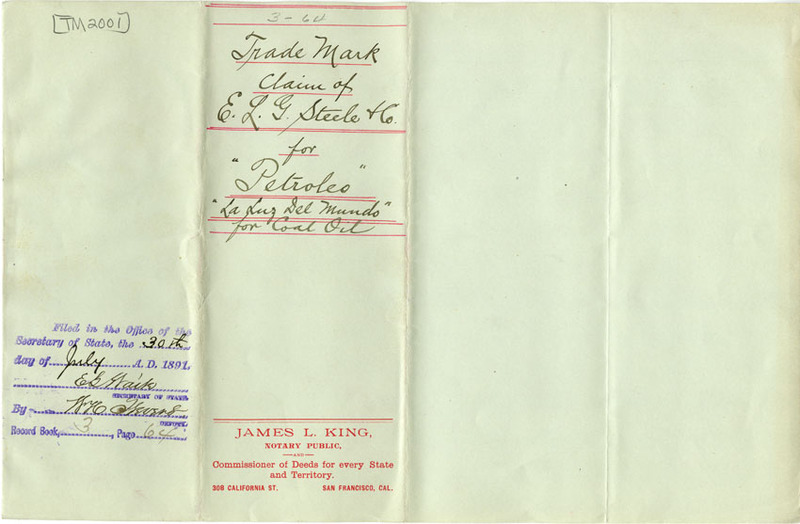 [TM2001]
3-64
Trade Mark
Claim of
E. L. G. Steele & Co.
for
"Petroleo"
"La Luz Del Mundo"
for Coal Oil
Filed in the Office of the
Secretary of State, the 30th
day of July A. D. 1891.
E G Waite
SECRETARY OF STATE.
By W H
DEPUTY.
Record Book 3, Page 64
JAMES L. KING,
NOTARY PUBLIC,
AND
Commissioner of Deeds for every State
and Territory.
308 CALIFORNIA ST. SAN FRANCISCO, CAL.